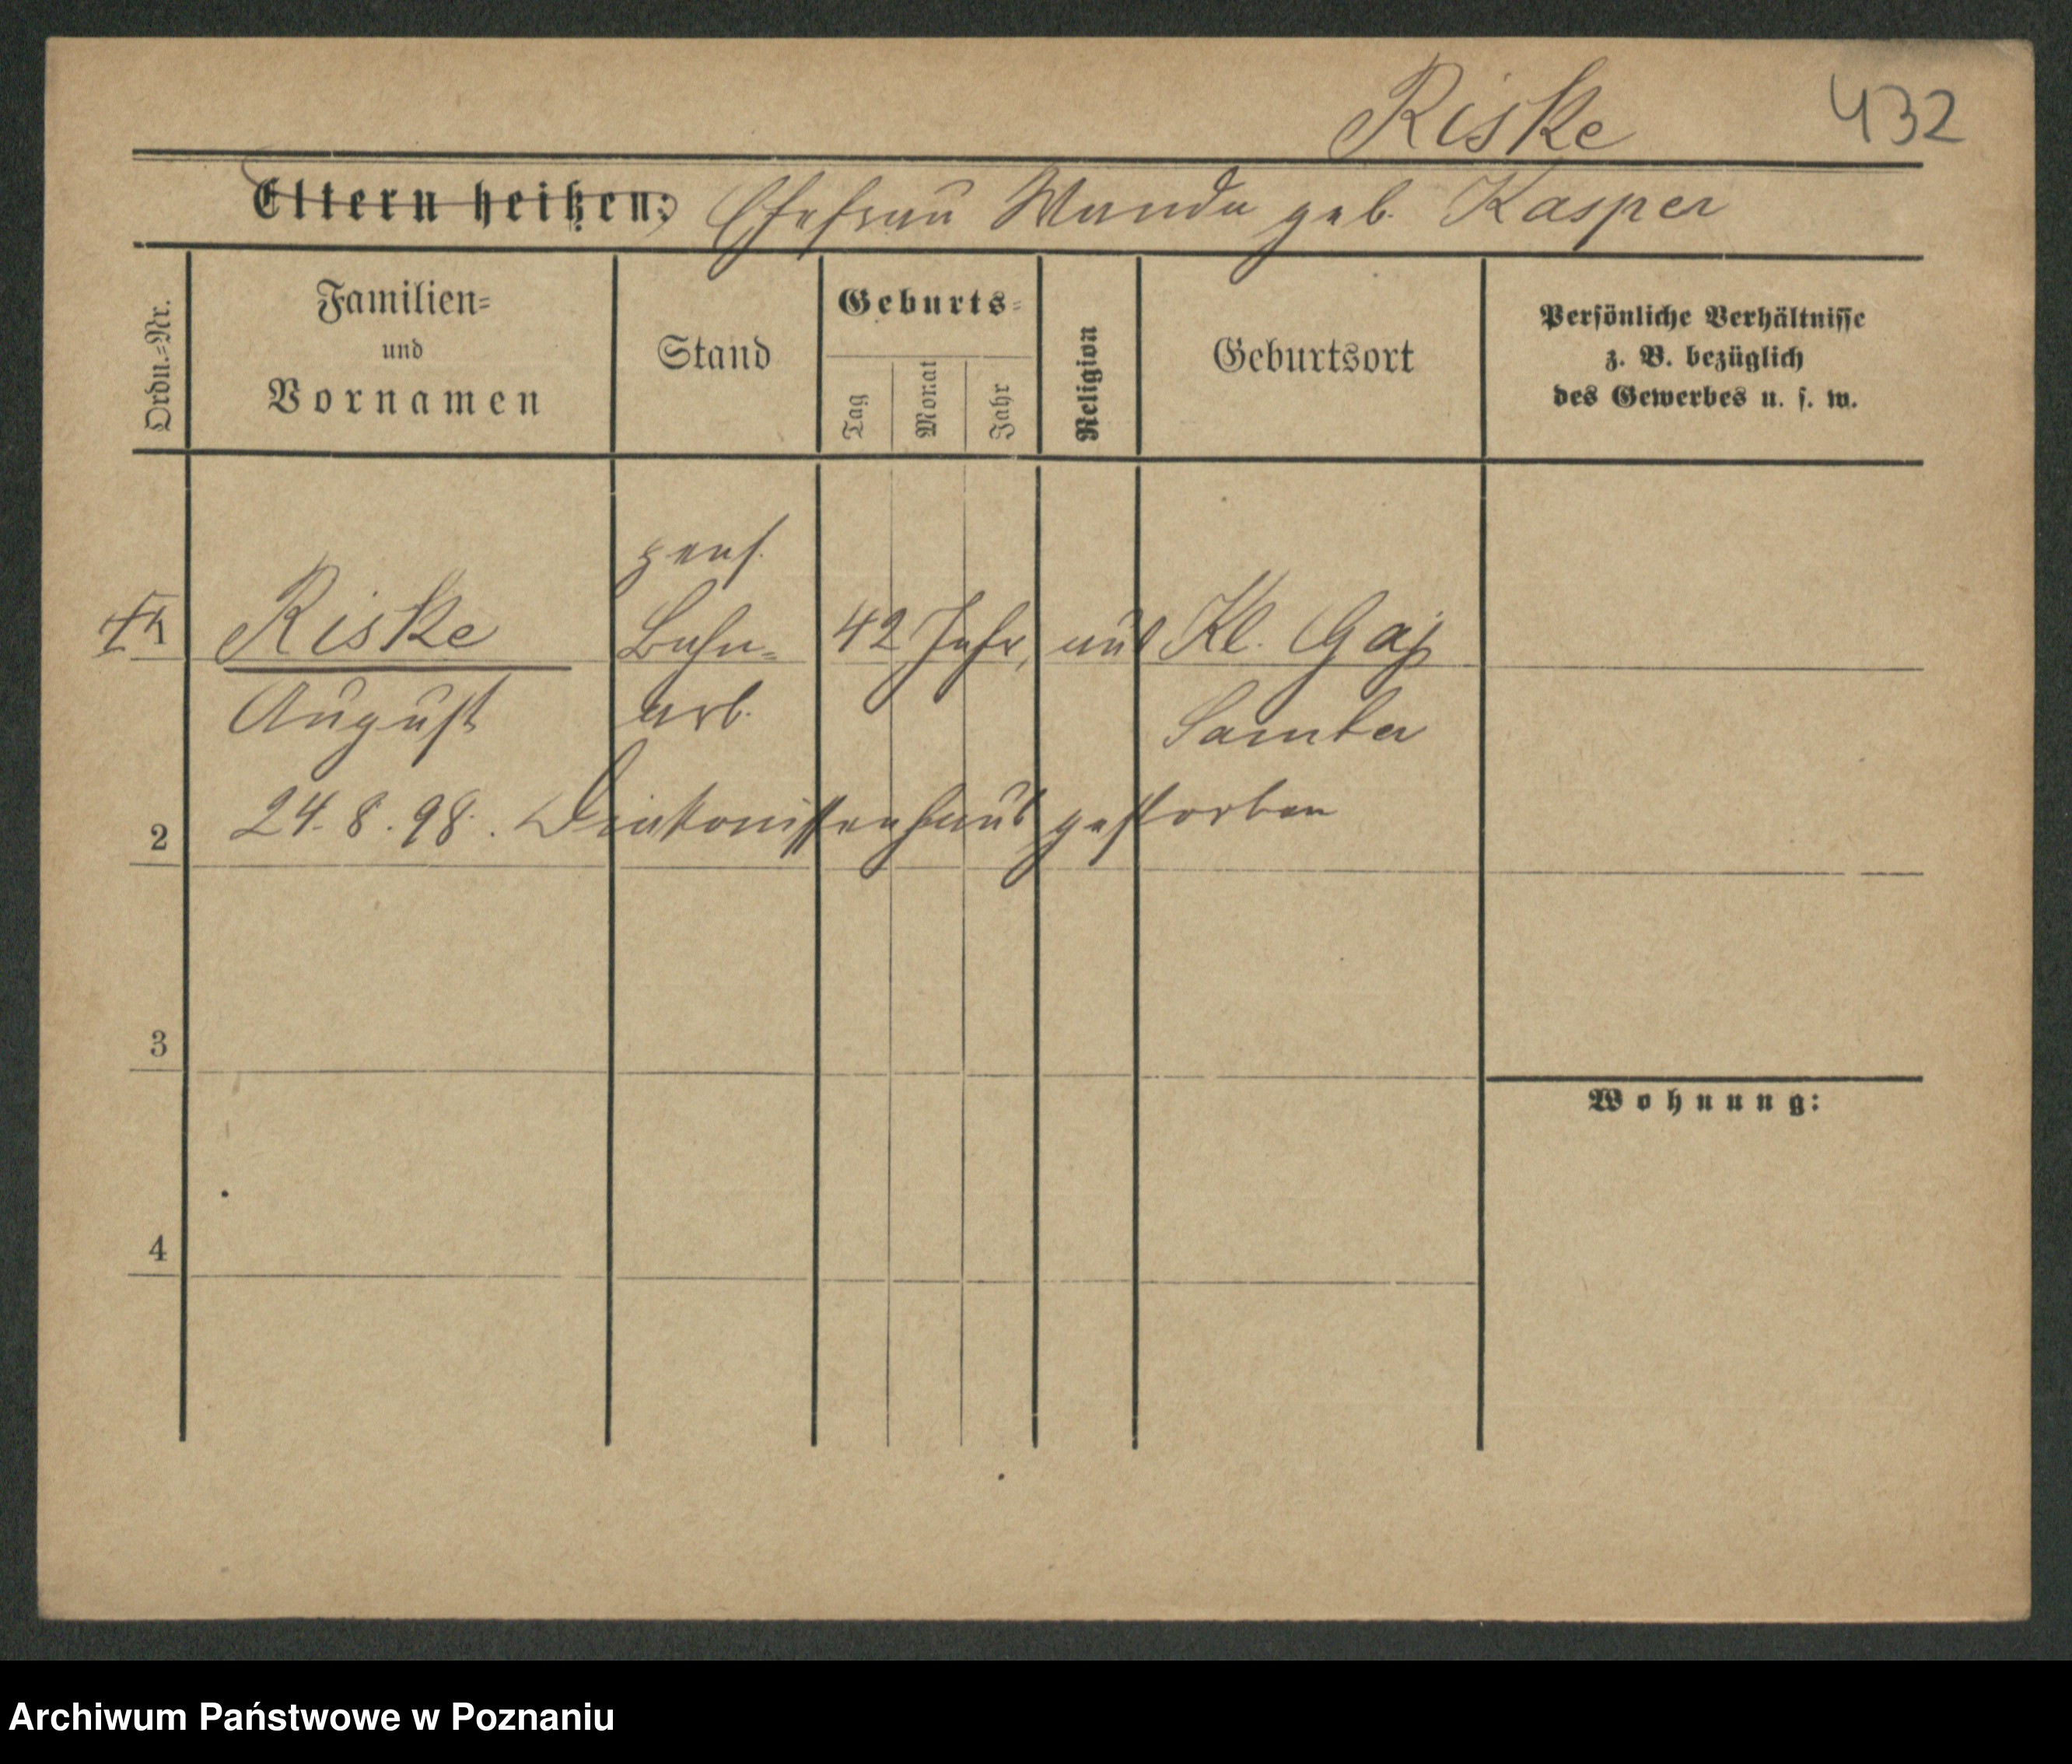 Riske 432
Eltern heißen: Ehefrau Wanda geb. Kasper
Ordn.-Nr.
Familien-
und
Vornamen
Stand
Geburts-
Tag
Monat
Jahr
Religion
Geburtsort
Persönliche Verhältnisse
z. B. bezüglich
des Gewerbes u. s. w.
pens.
Riske Bahn- 42 Jahr, aus Kl. Gaj
August arb. Samter
2 24.8.98. Diakonissenhaus gestorben
3
Wohnung:
4
Archiwum Państwowe w Poznaniu